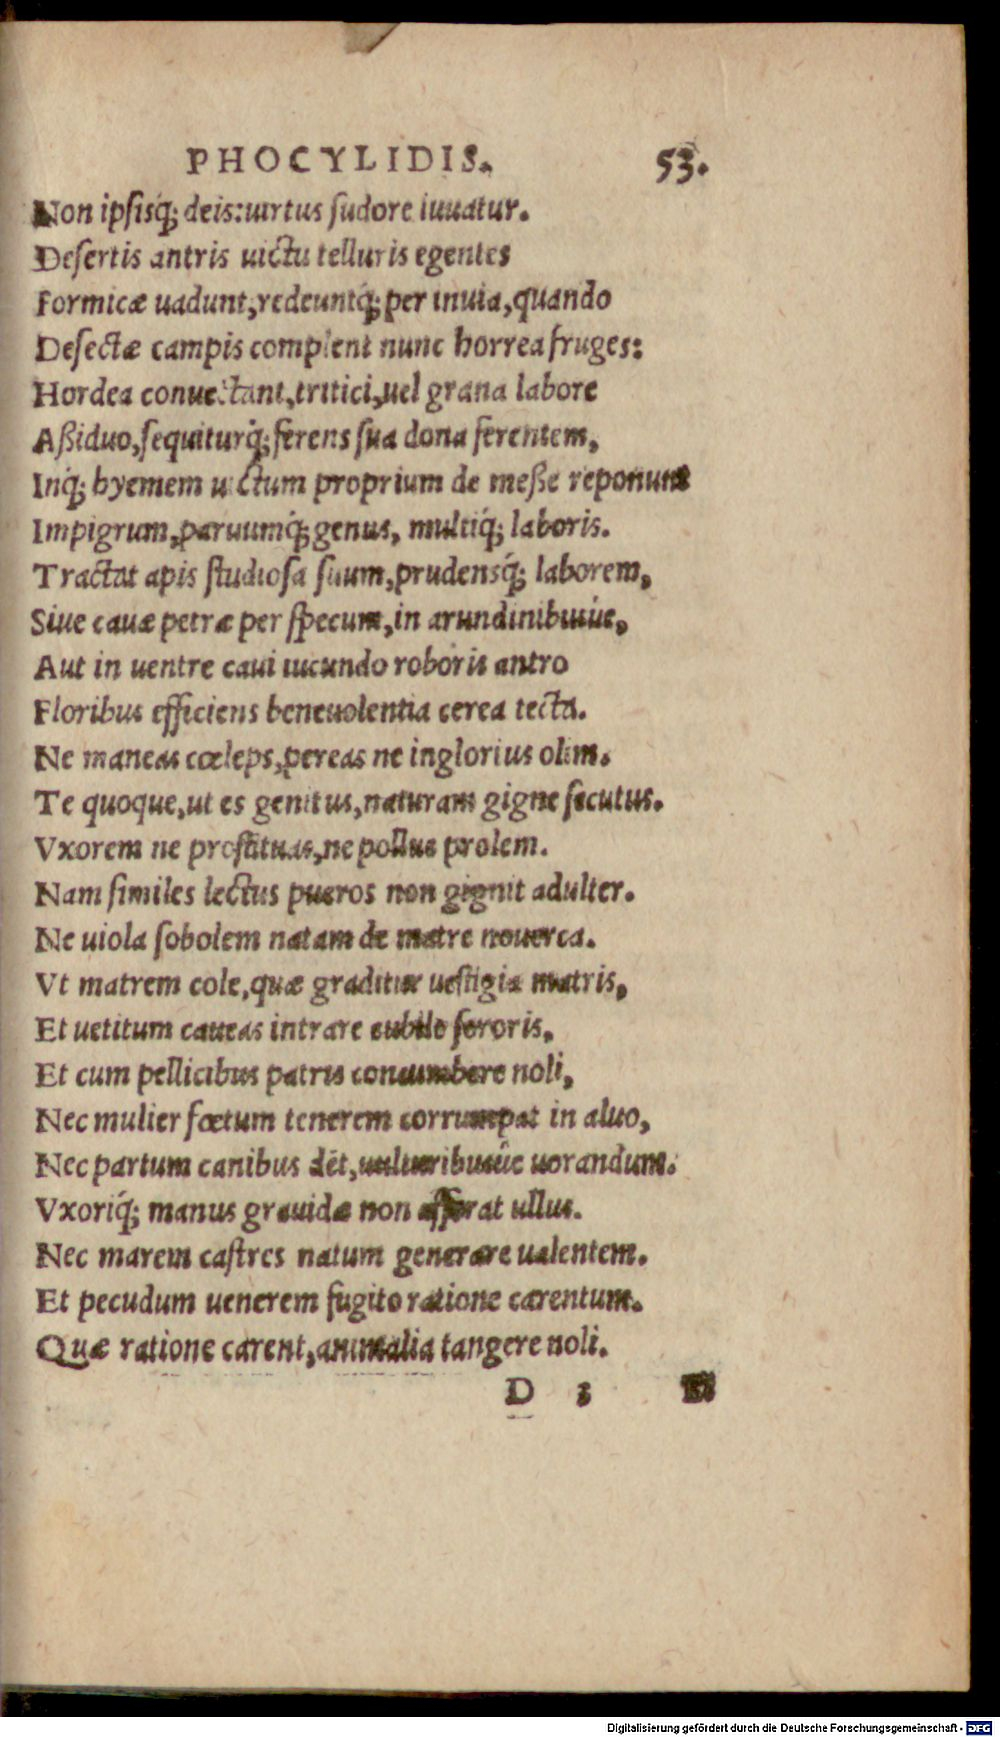 PHOCYLIDIS. 53.
Non ipsisq́; deis: uirtus sudore iuuatur.
Desertis antris uictu telluris egentes
Formicæ uadunt, redeuntq́; per inuia, quando
Desectæ campis complent nunc horrea fruges:
Hordea conuectant, tritici, uel grana labore
Aßiduo, sequiturq́; ferens sua dona ferentem,
Inq́; hyemem uictum proprium de meße reponunt
Impigrum, paruumq́; genus, multiq́; laboris.
Tractat apis studiosa suum, prudensq́; laborem,
Siue cauæ petræ per specum, in arundinibusúe,
Aut in uentre caui iucundo roboris antro
Floribus efficiens beneuolentia cerea tecta.
Ne maneas cœleps, pereas ne inglorius olim.
Te quoque, ut es genitus, naturam gigne secutus.
Vxorem ne prostituas, ne polluę prolem.
Nam similes lectus pueros non gignit adulter.
Ne uiola sobolem natam de matre nouerca.
Vt matrem cole, quæ graditur uestigia matris,
Et uetitum caueas intrare cubile sororis,
Et cum pellicibus patris concumbere noli,
Nec mulier fœtum tenerem corrumpat in aluo,
Nec partum canibus dēt, uulturibusúe uorandum.
Vxoriq́; manus grauidæ non afferat ullus.
Nec marem castres natum generare ualentem.
Et pecudum uenerem fugito ratione carentum.
Quæ ratione carent, animalia tangere noli.
D 3
Digitalisierung gefördert durch die Deutsche Forschungsgemeinschaft - DFG